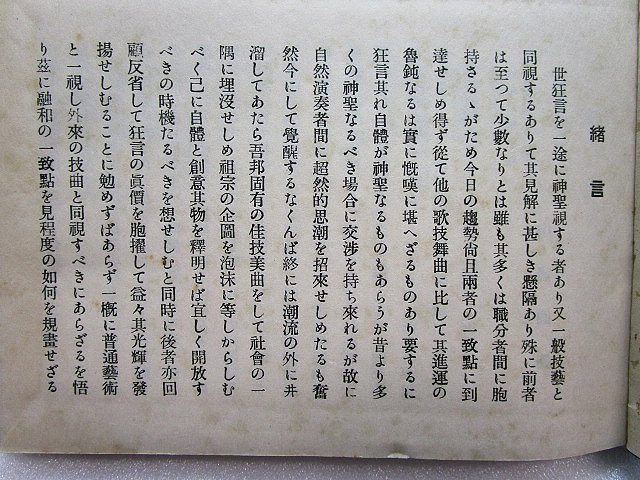 緒言
世狂言を一途に神聖視する者あり又一般技藝と
同視するありて其見解に甚しき懸隔あり殊に前者
は至つて少數なりとは雖も其多くは職分者間に胞
持さるゝがため今日の趨勢尙且兩者の一致點に到
達せしめ得ず從て他の歌技舞曲に比して其進運の
魯鈍なるは實に慨嘆に堪へざるものあり要するに
狂言其れ自體が神聖なるものもあらうが昔より多
くの神聖なるべき場合に交渉を持ち來れるが故に
自然演奏者間に超然的思潮を招來せしめたるも奮
然今にして覺醒するなくんば終には潮流の外に丼
溜してあたら吾邦固有の佳技美曲をして社會の一
隅に埋沒せしめ祖宗の企圖を泡沫に等しからしむ
べく己に自體と創意其物を釋明せば宜しく開放す
べきの時機たるべきを想せしむと同時に後者亦回
顧反省して狂言の眞價を胞擢して益々其光輝を發
揚せしむることに勉めずばあらず一概に普通藝術
と一視し外來の技曲と同視すべきにあらざるを悟
り玆に融和の一致點を見程度の如何を規畫せざる